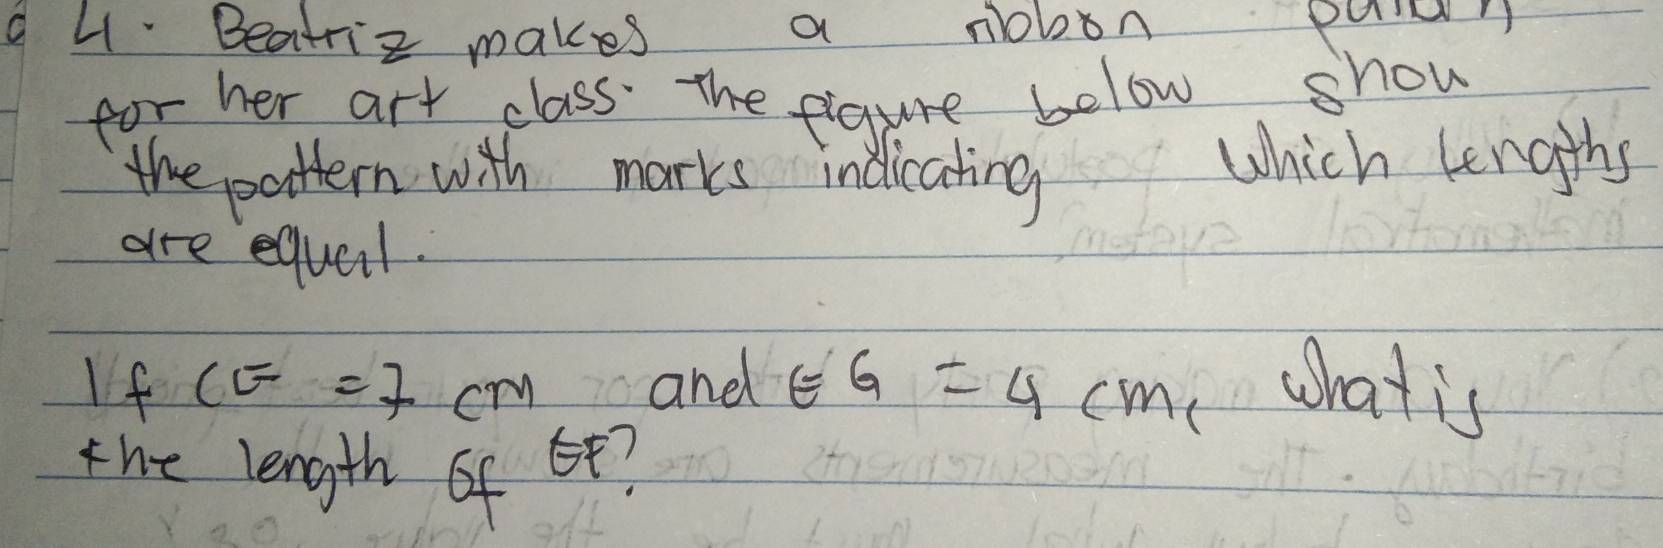 4. Beatriz makes a ribbon
for her art class. The figure below show
the pattern with marks indicating which lengths
are equal.
If CE = 7 cm and EG = 4 cm, what is
the length of EF?